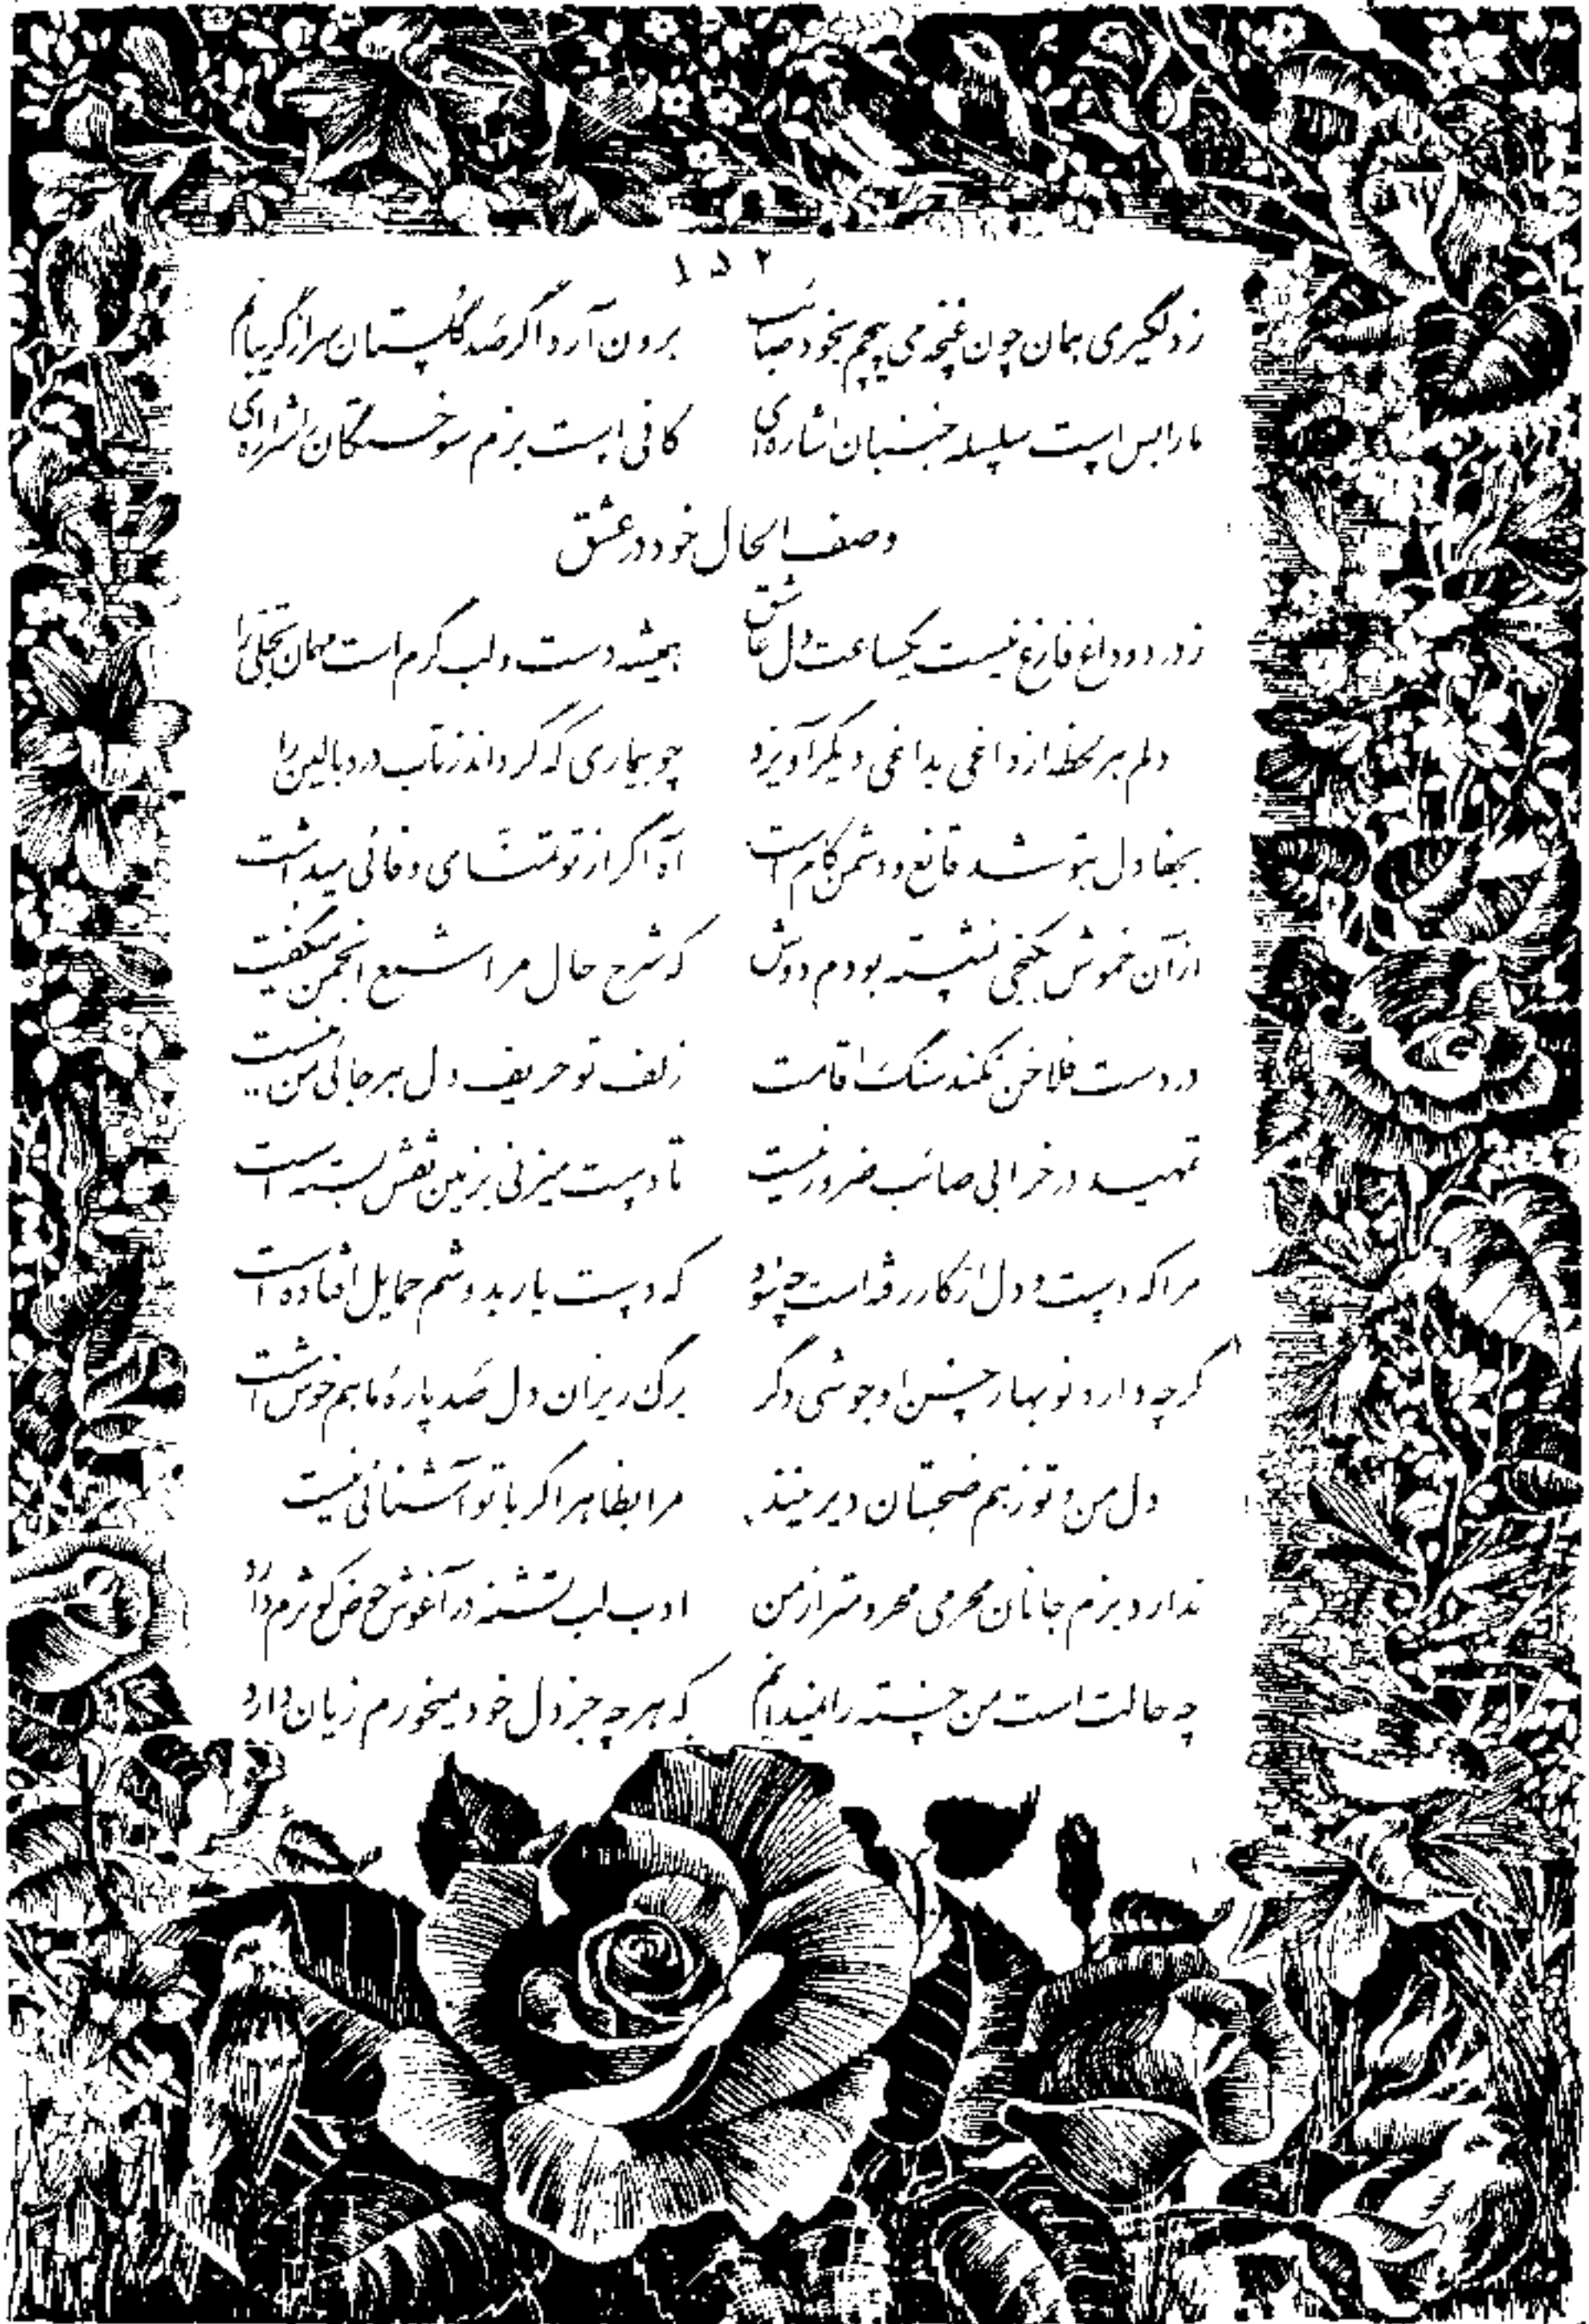 ۱۵۲
ز دلگیری همان چون غنچه می پیچم بخود صائب برون آرد اگر صد گلستان سر از گریبانم
ما را بس است سلسله جنبان اشاره‌ای کافی است بزم سوختگان را شراره‌ای
وصف الحال خود در عشق
ز درد و داغ فارغ نیست یکساعت دل عاشق همیشه دست و لب گرم است مهمان تجلی را
دلم هر لحظه از داغی بداغی دیگر آویزد چو بیماری که گرداند ز تاب درد بالین را
بجفا دل بتو شد قانع و دشمن کام است آه اگر از تو تمنای وفائی میداشت
از آن خموش بکنجی نشسته بودم دوش که شرح حال مرا شمع انجمن میگفت
در دست فلاخن نکند سنگ اقامت زلف تو حریف دل هر جائی من نیست
تمهید در خرابی صائب ضرور نیست تا دست میزنی بزمین نقش بسته است
مرا که دست و دل از کار رفته است چه سود که دست یار بدوشم حمایل افتاده است
گرچه دارد نوبهار حسن او جوشی دگر برگ ریزان دل صد پارهٔ ما هم خوش است
دل من و تو ز هم صحبتان دیرینند مرا بظاهر اگر با تو آشنائی نیست
ندارد بزم جانان محرمی محرومتر از من ادب لب تشنه در آغوش حوض کوثرم دارد
چه حالت است من خسته را نمیدانم که هر چه جز دل خود میخورم زیان دارد